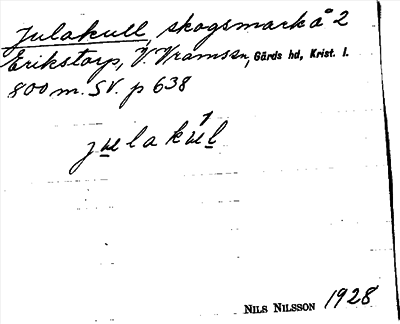 Julakull, skogsmark å 2
Erikstorp, V. Vramssn, Gärds hd, Krist. l.
800 m. SV. p 638
julakul
NILS NILSSON 1928